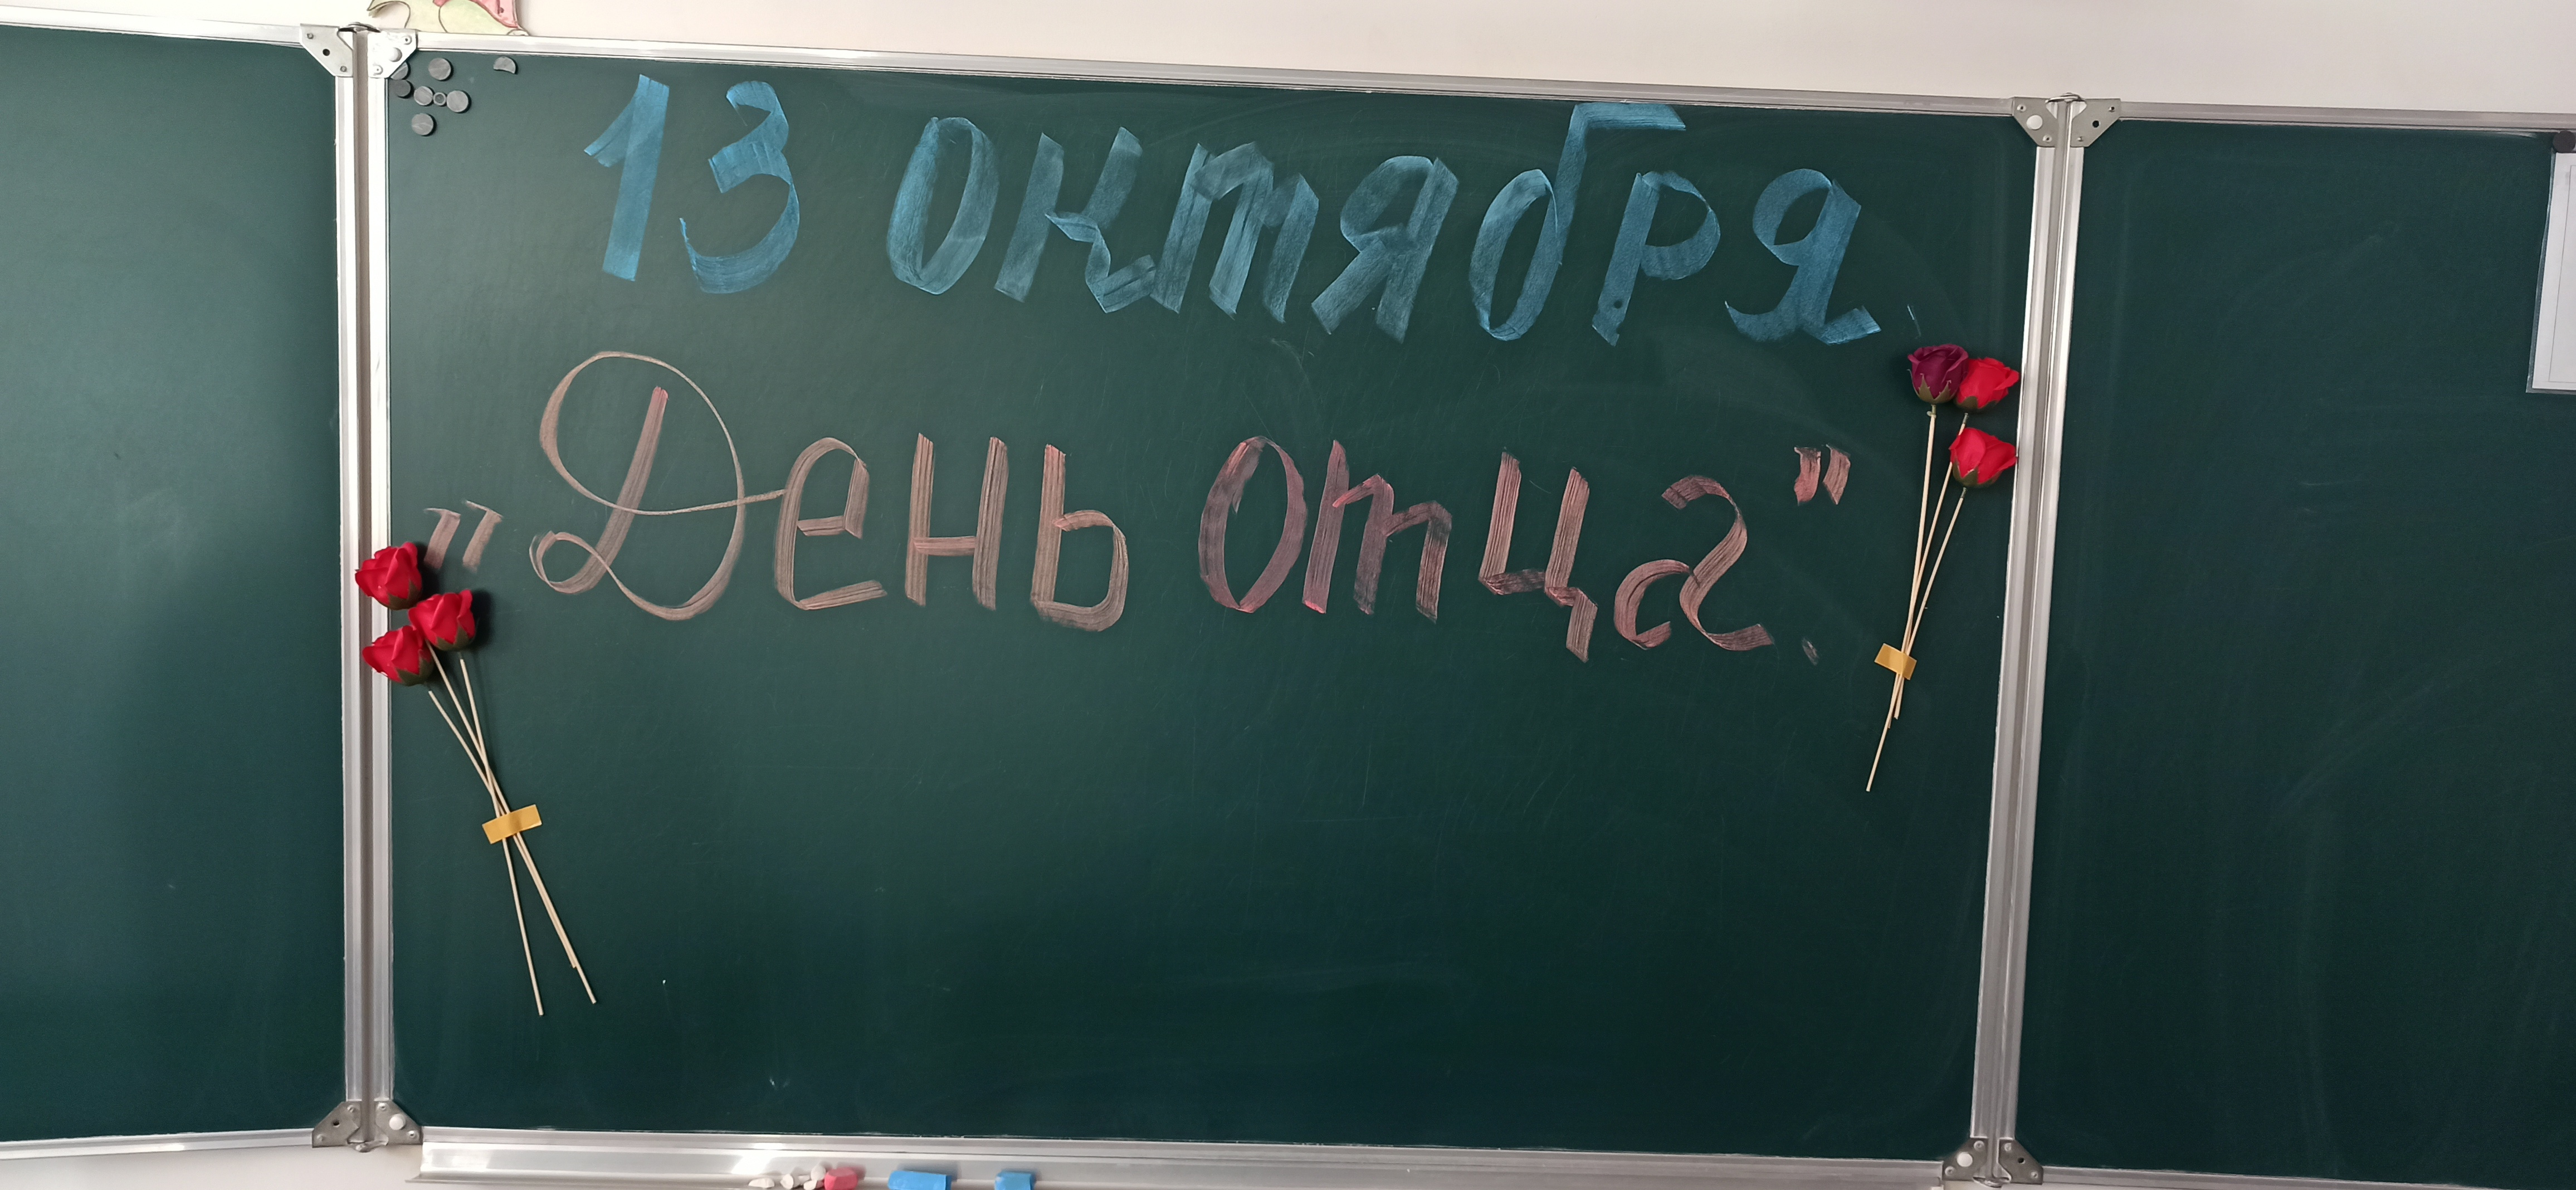 13 октября.
"День отца".